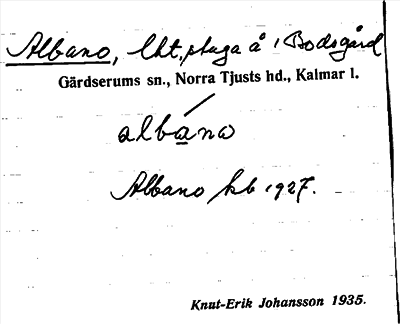 Albano, lht, stuga å Bodsgård
Gärdserums sn., Norra Tjusts hd., Kalmar l.
albana
Albano kb 1927.
Knut-Erik Johansson 1935.